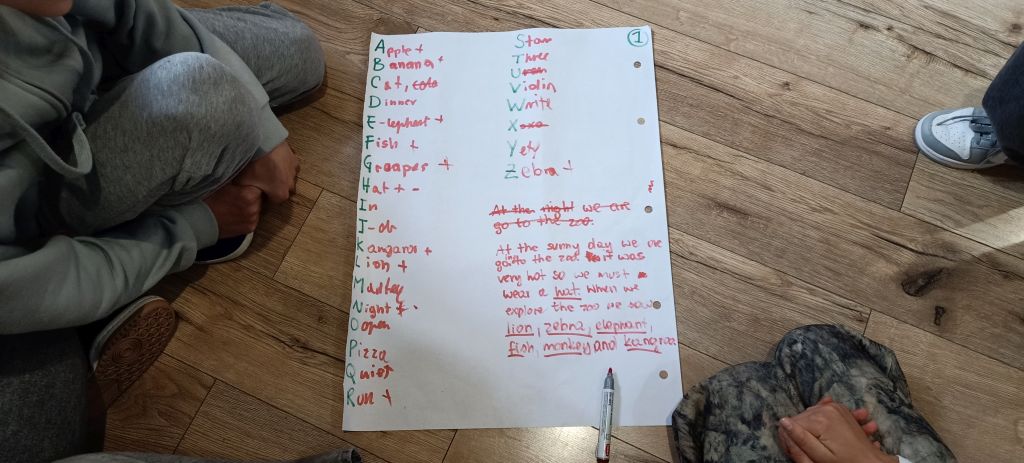 1
Apple +
Banana +
Cat, cola
Dinner
E-lephant +
Fish +
Greapes +
Hat + -
In
J-ob
Kangaroo +
Lion +
Night +
Open
Pizza
Quiet
Run +
Star
Three
U
Violin
Write
X
Yety
Zebra +
At the night we are
go to the zoo.
At the sunny day we are
going to the zoo. it was
very hot so we must
wear a hat. When we
explore the zoo we saw
lion, zebra, elephant,
fish, monkey and kangroo